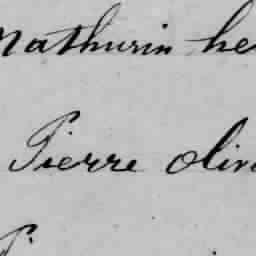 Mathurin he
Pierre oliv